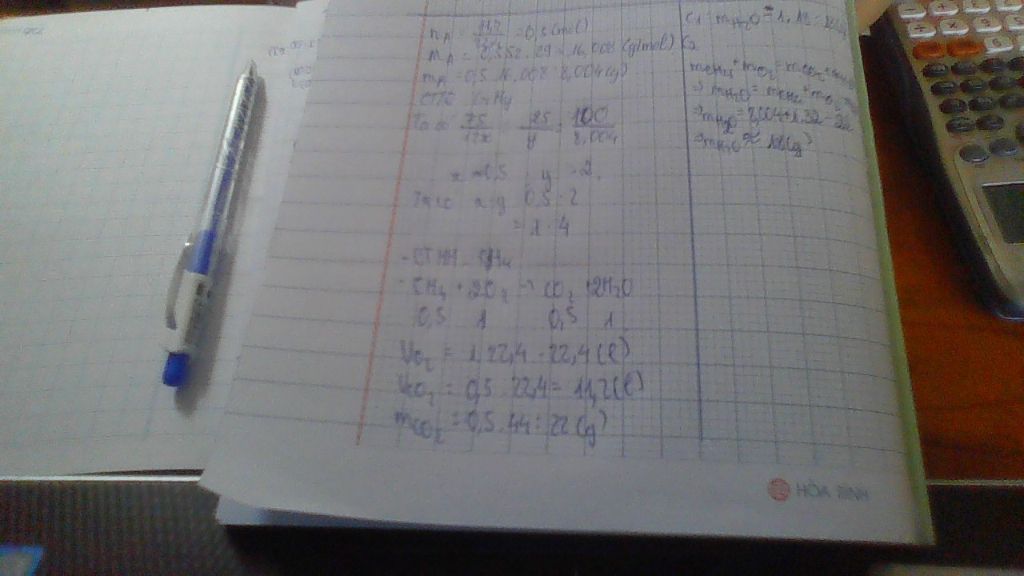 = 0,5 (mol)
= 0,552 . 29 = 16,008 (g/mol)
= 0,5 . 16,008 = 8,004 (g)
CTTQ CxHy
Ta có 75/12x 25/y = 100/8,004
x = 0,5 y = 2
Ta có x : y 0,5 : 2
= 1 : 4
- CTHH CH4
- CH4 + 2O2 → CO2 + 2H2O
0,5 1 0,5 1
VO2 = 1.22,4 = 22,4 (l)
VCO2 = 0,5 . 22,4 = 11,2 (l)
mCO2 = 0,5 . 44 = 22 (g)
C1 mH2O = 1.18 =
C2
mCH4 + mO2 = mCO2 +
⇒ mH2O = mCH4 + mO2
⇒ mH2O = 8,004 + 1.32 - 22
⇒ mH2O ≈ 18 (g)
HÒA BÌNH